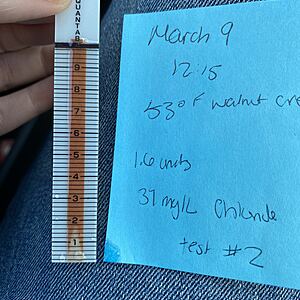 QUANTAB
9
8
7
6
5
4
3
2
1
March 9
12:15
53° F walnut cre
1.6 units
37 mg/L Chloride
test #2